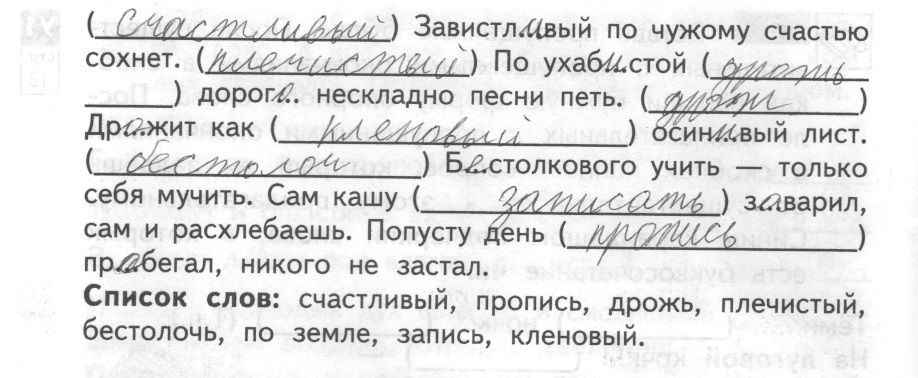 (счастливый) Завистливый по чужому счастью
сохнет. (плечистый) По ухабистой (дрожь
) дорога.. нескладно песни петь. (дрож )
Дрожит как (кленовый) осинивый лист.
(бестолоч ) Бестолкового учить — только
себя мучить. Сам кашу (записать) заварил,
сам и расхлебаешь. Попусту день пропись )
прабегал, никого не застал.
Список слов: счастливый, пропись, дрожь, плечистый,
бестолочь, по земле, запись, кленовый.